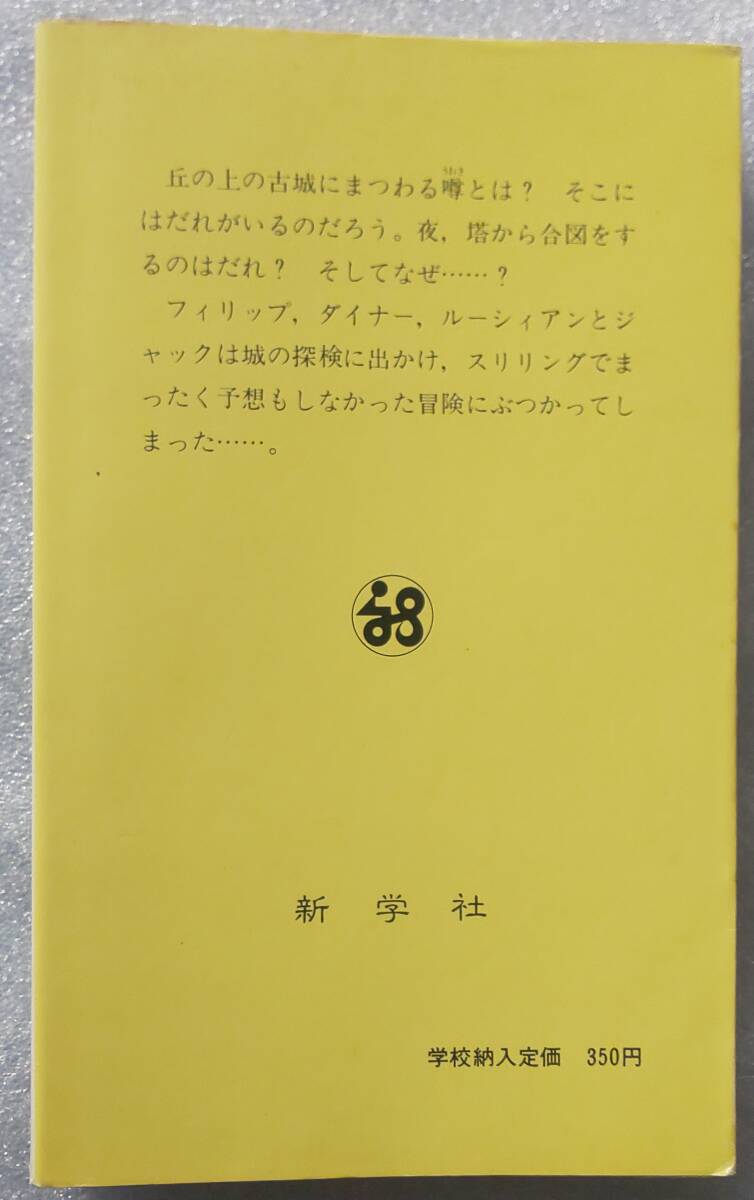 丘の上の古城にまつわる噂とは？　そこに
はだれがいるのだろう。夜，塔から合図をす
るのはだれ？　そしてなぜ……？
フィリップ，ダイナー，ルーシィアンとジ
ャックは城の探検に出かけ，スリリングでま
ったく予想もしなかった冒険にぶつかってし
まった……。
新学社
学校納入定価　350円